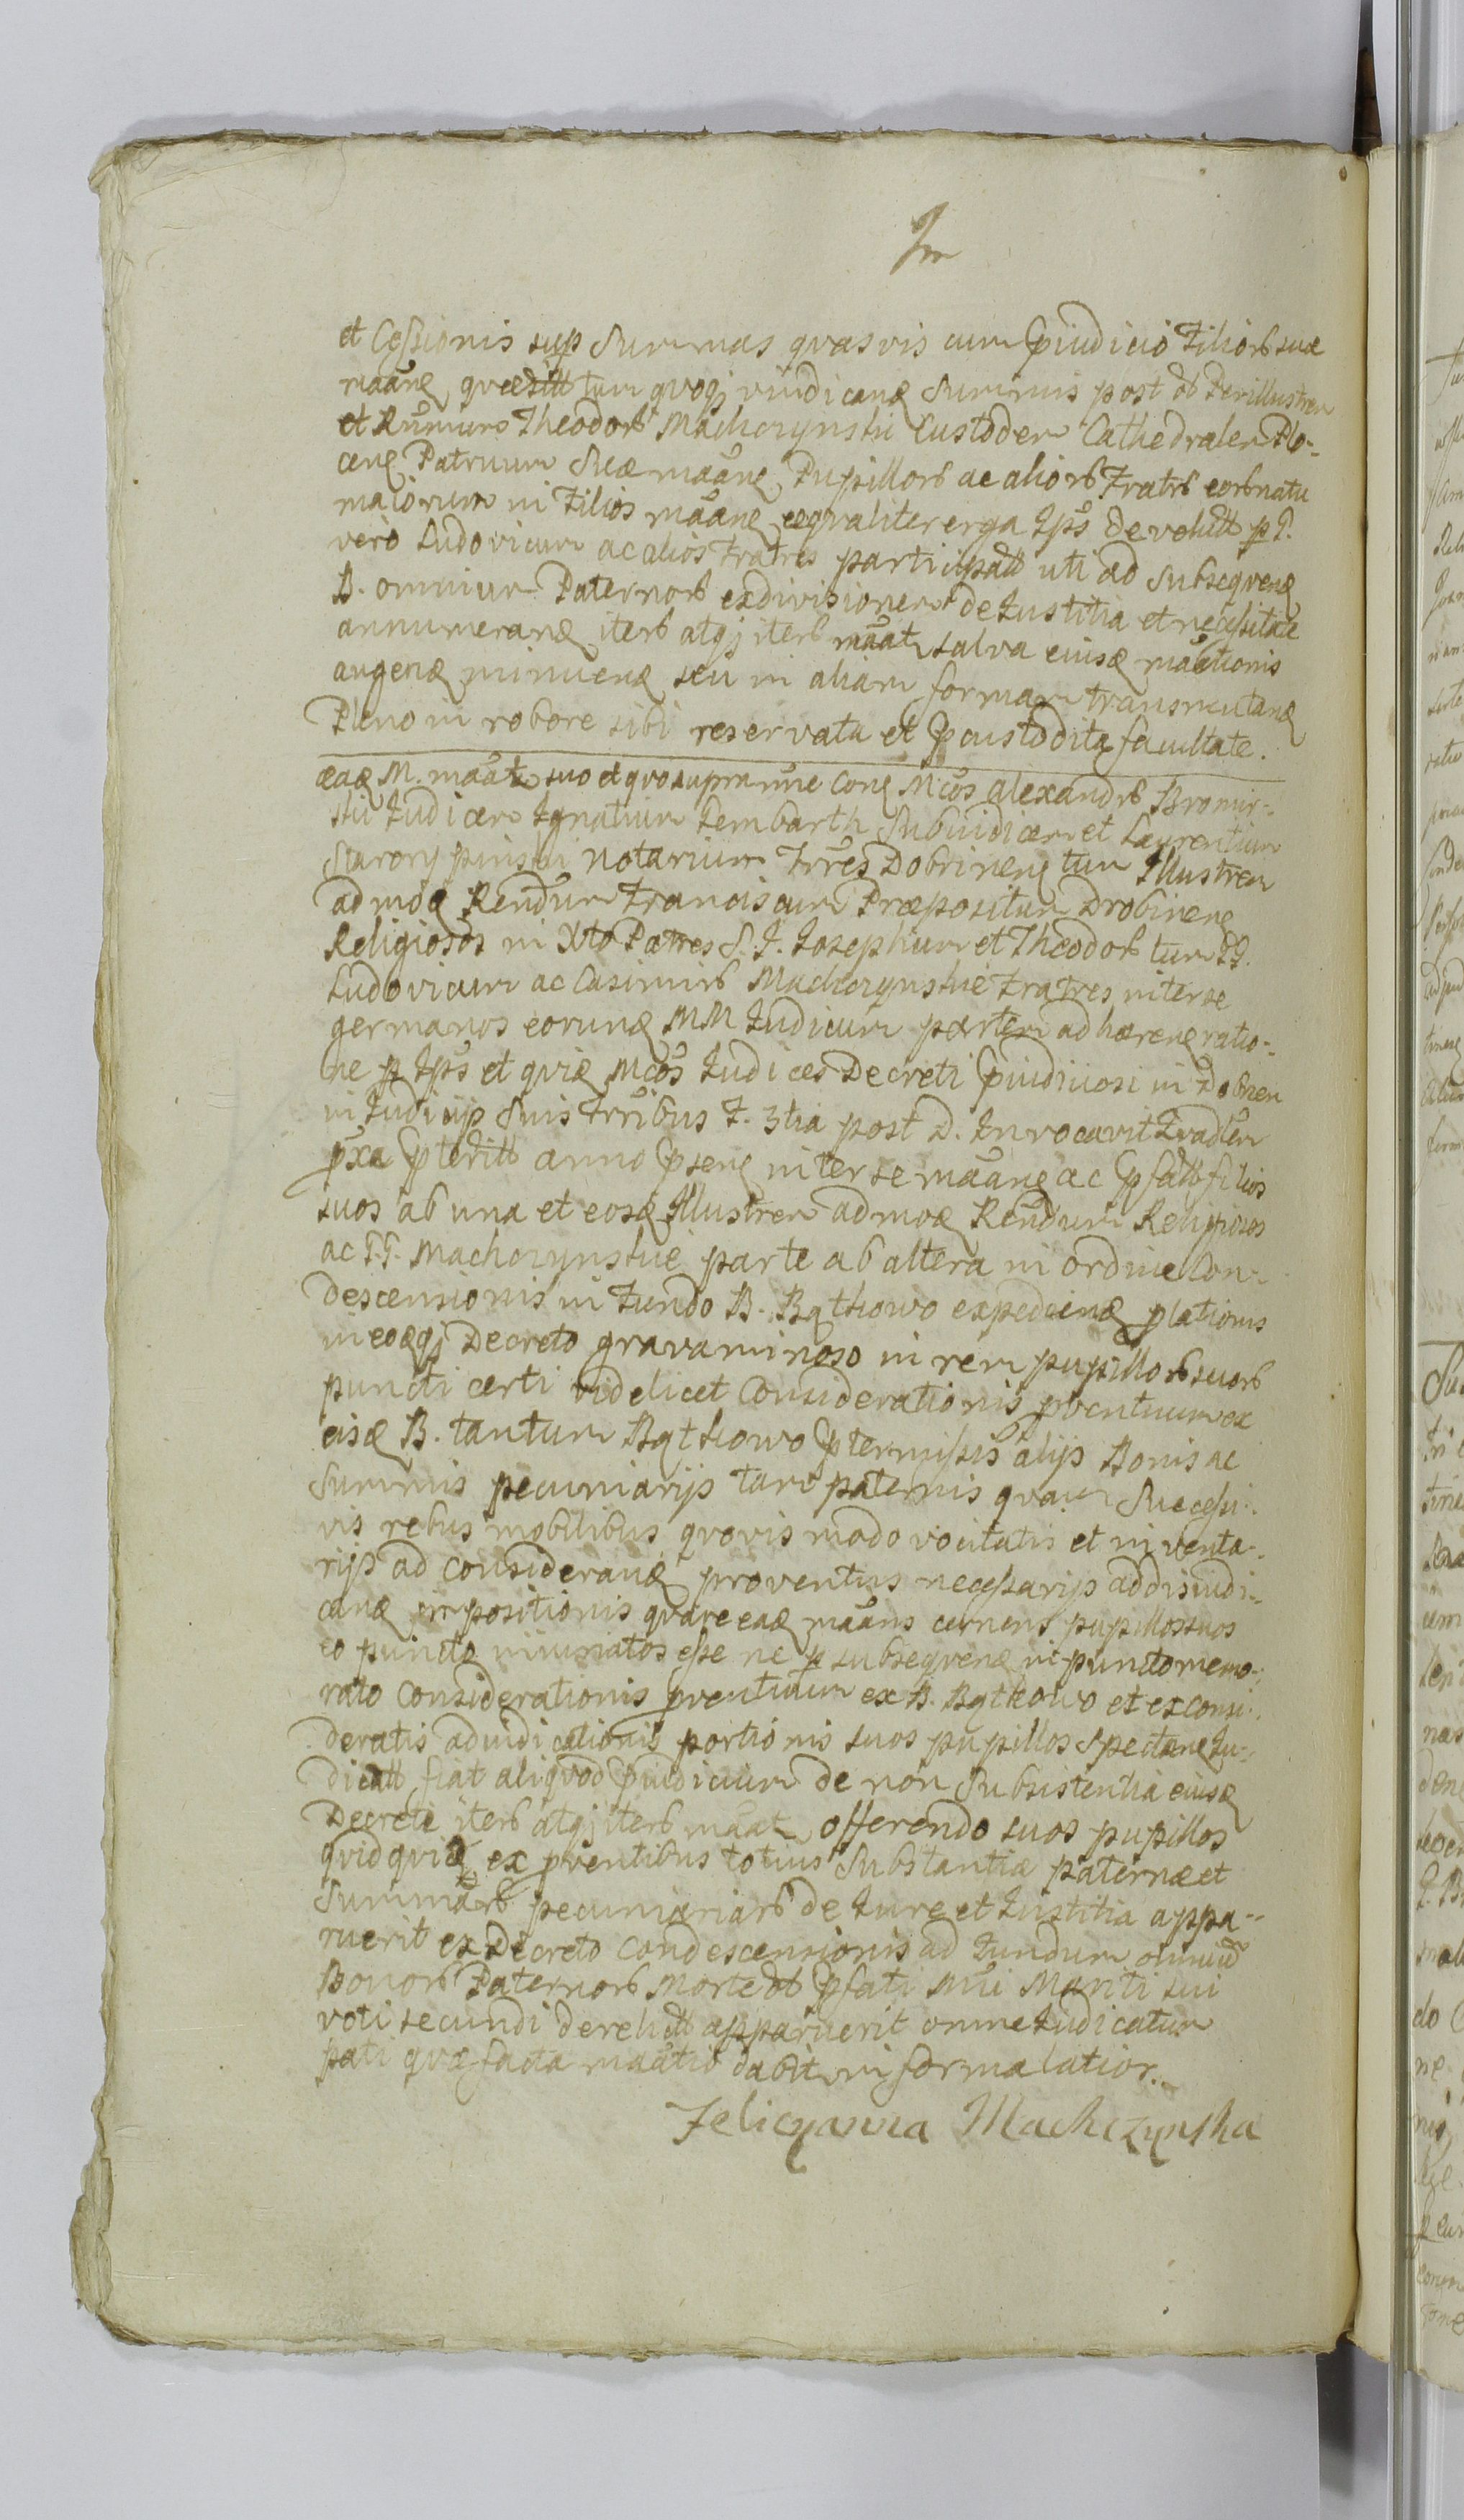 Im
et Cessionis sup Summas quasvis cum Pjudicio Filiorb suæ
mãanę quæsitt tum quoqj vindicanę Summis post ob Perillustrem
et Rñmum Theodorb Machczynski Custodem Cathedralem Plo-
cenę Patruum Suæ mãanę Pupillorb ac aliorb Fratrb eorb natu
maiorum in Filios mãanę æqualiter erga Ips devolutt p G.
vero Ludovicum ac alios Fratres participatt uti ad subsequenę
B. omnium Paternorb exdivisionem de Iustitia et necessitate
annumeranę iterb atqj iterb mãat salva eiusę mãaõtionis
augenę minuenę seu in aliam formam transmutanę
Pleno in robore sibi reservata et Pcustodita facultate.
eaę M. mãat suo et quo supra nñe conę Mcos Alexandrb Bromir-
ski Iudicem Ignatium Zembarth Subiudicem et Laurentium
Starorypinski Notarium Trres Dobrinenę tum Illustrem
admoę Rendum Franciscum Præpositum Drobinenę
Religiosos in Xto Patres S. J. Iosephum et Theodorb tum GG.
Ludovicum ac Casimirb Machczynskie Fratres inter se
germanos eorunę MM Iudicum partem adhærenę ratio-
ne p Ips et quię Mcos Iudices Decreti Pjudiciosi in Dobrzen
in Iudicijs Suis Trribus F. 3tia post D. Invocavit Qvadlem
pxa Pteritt anno Psenę inter se mãanę ac Pfatt filios
suos ab una et eosę Illustrem admoę Rendum Religiosos
ac G.G. Machczynskie parte ab altera in ordine Con-
descensionis in Fundo B. Bątkowo expediendę plationis
in eoęqj Decreto gravaminoso in rem pupillorb suorb
puncti certi videlicet Considerationis pventuum ex
eisę B. tantum Bątkowo Ptermissis alijs Bonis ac
Summis pecuniarijs tam paternis quam Successi-
vis rebus mobilibus quovis modo vocitatis et inventa-
rijs ad consideranę proventus necessarijs addisiudi-
canę impositionis quare eaę mãans cernens pupillos suos
eo puncto iniuriatos esse ne p subsequenę in puncto memo-
rato Considerationis pventuum ex B. Bątkowo et ex consi-
deratis adiudicationis portionis suos pupillos Spectanę Iu-
dicatt fiat aliquod Pjudicium de non Subsistentia eiusę
Decreti iterb atqj iterb mãat offerendo suos pupillos
quidquię ex pventibus totius Substantiæ paternæ et
Summarb pecuniariarb de Iure et Iustitia appa-
ruerit ex Decreto condescensionis ad Fundum omniu
Bonorb Paternorb Morte ob Pfati Mñi Mariti sui
voti secundi derelictt apparuerit omne Iudicatum
pati quæ facta mãatio dabit in forma latior.
Felicyanna Machczynska